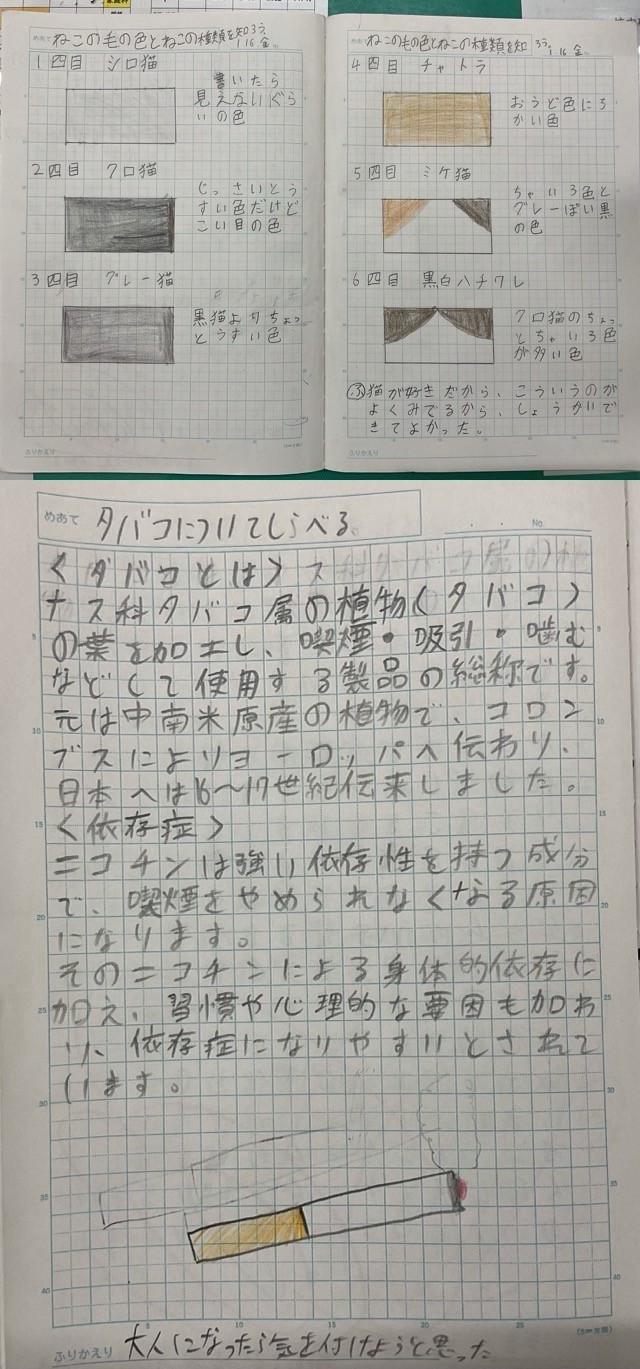 めあて ねこの毛の色とねこの種類を知ろう。 1/16 金
1四目 シロ猫
書いたら
見えないぐら
いの色
2四目 クロ猫
じっさいとう
すい色だけど
こい目の色
3四目 グレー猫
黒猫よりちょっ
とうすい色
ふりかえり
めあて ねこの毛の色とねこの種類を知ろう。 1/16 金
4四目 チャトラ
おうど色にち
かい色
5四目 ミケ猫
ちゃいろ色と
グレーぽい黒
の色
6四目 黒白ハチワレ
クロ猫のちょっ
とちゃいろ色
が多い色
ふ猫が好きだから、こういうのが
よくみてるから、しょうかいで
きてよかった。
ふりかえり
めあて タバコについてしらべる
No.
<タバコとは>
ナス科タバコ属の植物(タバコ)
の葉を加工し、喫煙・吸引・噛む
などして使用する製品の総称です。
元は中南米原産の植物で、コロン
ブスによりヨーロッパへ伝わり、
日本へは16〜17世紀伝来しました。
<依存症>
ニコチンは強い依存性を持つ成分
で、喫煙をやめられなくなる原因
になります。
そのニコチンによる身体的依存に
加え、習慣や心理的な要因も加わ
り、依存症になりやすいとされて
います。
ふりかえり 大人になったら気を付けようと思った